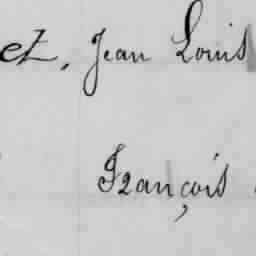 et, Jean Louis
François